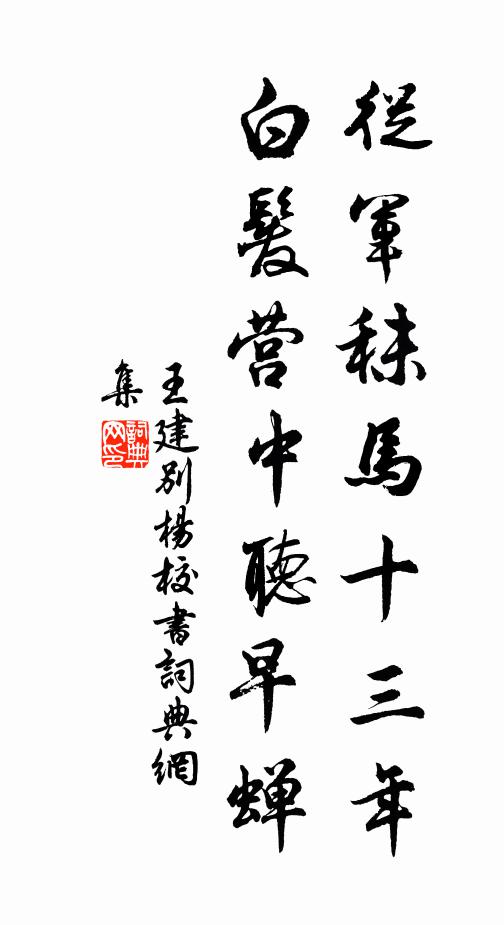 從軍秣馬十三年
白髮营中聽早蝉
王建别楊校書詞典網
集
詞典
网印